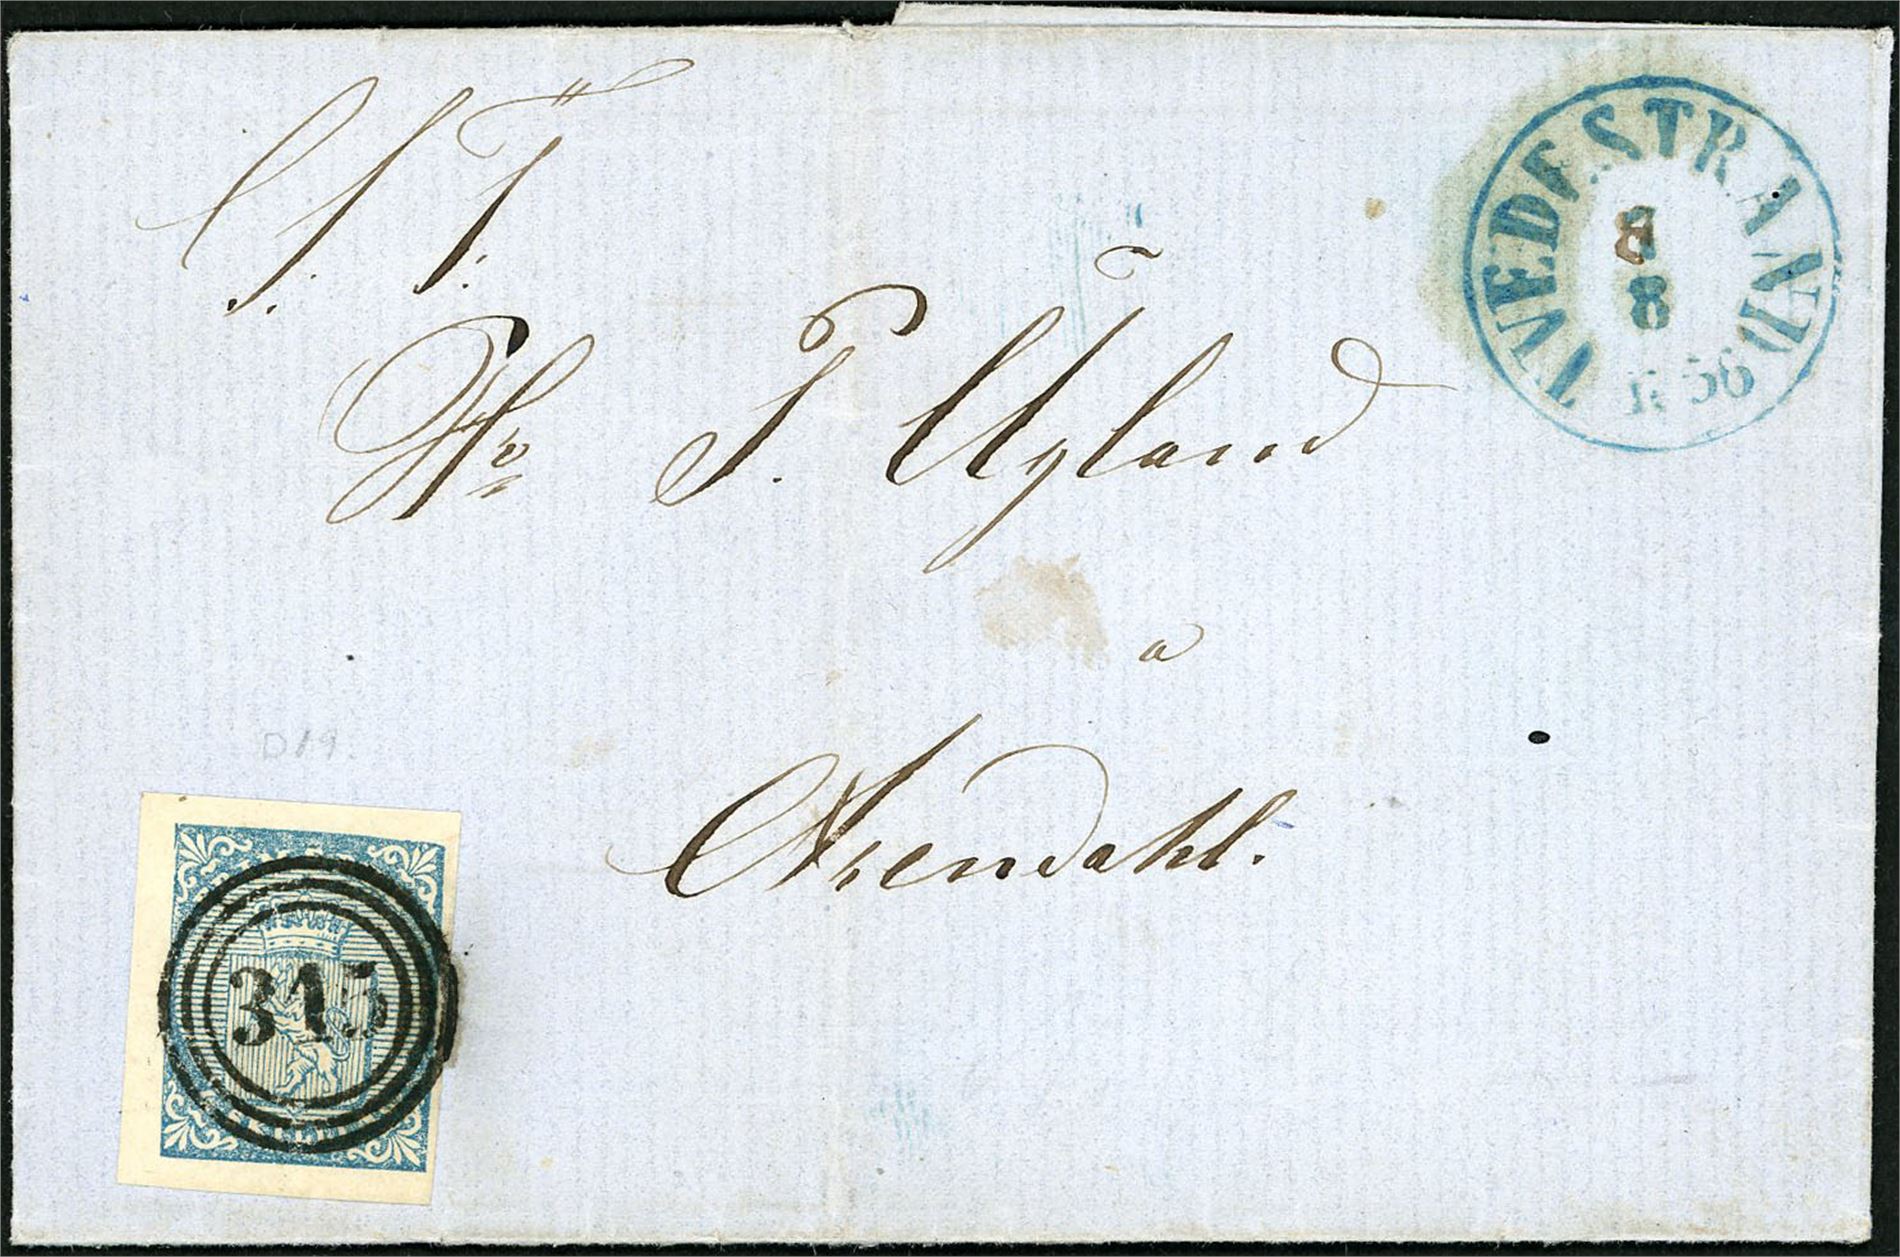 S. T.
TVEDESTRAND
8
8
1856
Hr P. Ugland
a
Arendahl.
D19
315